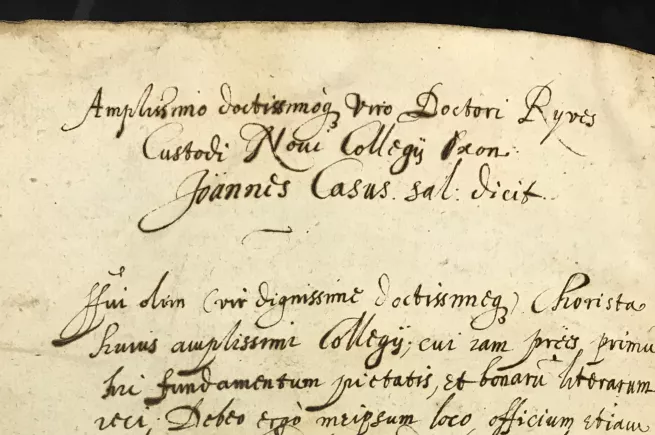 Amplissimo doctissimoq́ꝫ Viro Doctori Ryves
Custodi Novi Collegij Oxon:
Joannes Casus. sal: dicit.
ffui olim (vir dignissime doctissimeqꝫ) Chorista
huius amplissimi Collegij; cui iam præes, primū
hic fundamentum pietatis, et bonarū literarum
ieci; Debeo ergò meipsum loco, officium etiam